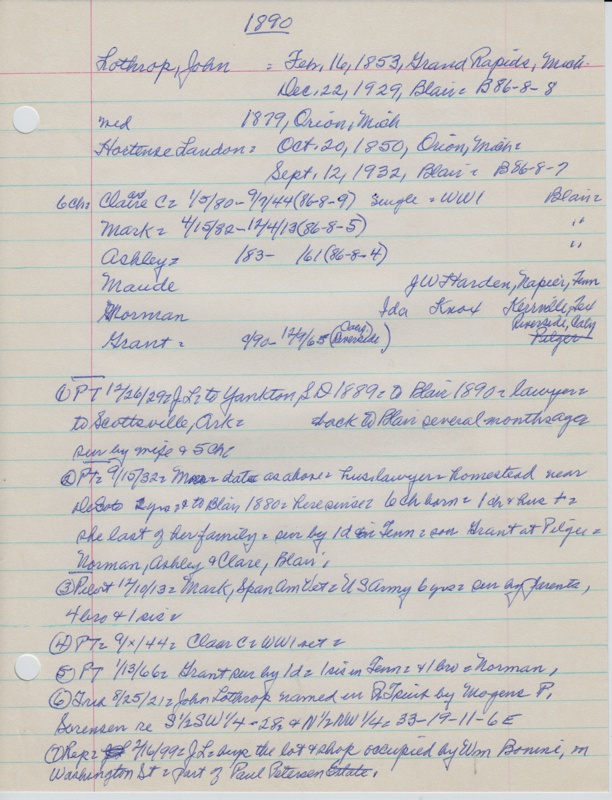 1890
Lothrop, John = Feb. 16, 1853, Grand Rapids, Mich.
Dec. 22, 1929, Blair = B86-8-8
md 1879, Orion, Mich
Hortense Landon = Oct. 20, 1850, Orion, Mich =
Sept. 12, 1932, Blair = B86-8-7
6 ch = Claire C = 1/5/80 - 9/7/44 (86-8-9) Single = WW1 Blair =
Mark = 4/15/82 - 12/4/13 (86-8-5) "
Ashley = 183- 161 (86-8-4) "
Maude J W Harden, Napier, Tenn
Norman Ida Knox Kerrville, Tex
Riverside, Calif
Grant = 9/90 - 12/9/65 (Calif. Riverside) Pilger
① PT 12/26/29 = J L = to Yankton, S D 1889 = to Blair 1890 = lawyer =
to Scottsville, Ark = back to Blair several months ago
sur by wife & 5 ch
② PT = 9/15/32 = data as above = hus lawyer = homestead near
DeSoto 2 yrs = to Blair 1880 = here since = 6 ch born = 1 ch & hus + =
she last of her family = sur by 1 d in Tenn = son Grant at Pilger =
Norman, Ashley & Clare, Blair,
③ Pilot 12/10/13 = Mark, Span Am Vet = U S Army 6 yrs = sur by parents,
4 bro & 1 sis =
④ PT = 9/x/44 = Clair C = WW1 vet =
⑤ PT 1/13/66 = Grant sur by 1 d = 1 sis in Tenn = & 1 bro = Norman,
⑥ 8/25/21 = John Lothrop named in by Mogens P.
Sorensen re S 1/2 SW 1/4 - 28, & N 1/2 NW 1/4 = 33-19-11-6 E
⑦ Rep = 2/16/99 = J L = buys the lot & shop occupied by Wm Bonine, on
Washington St = part of Paul Petersen Estate,